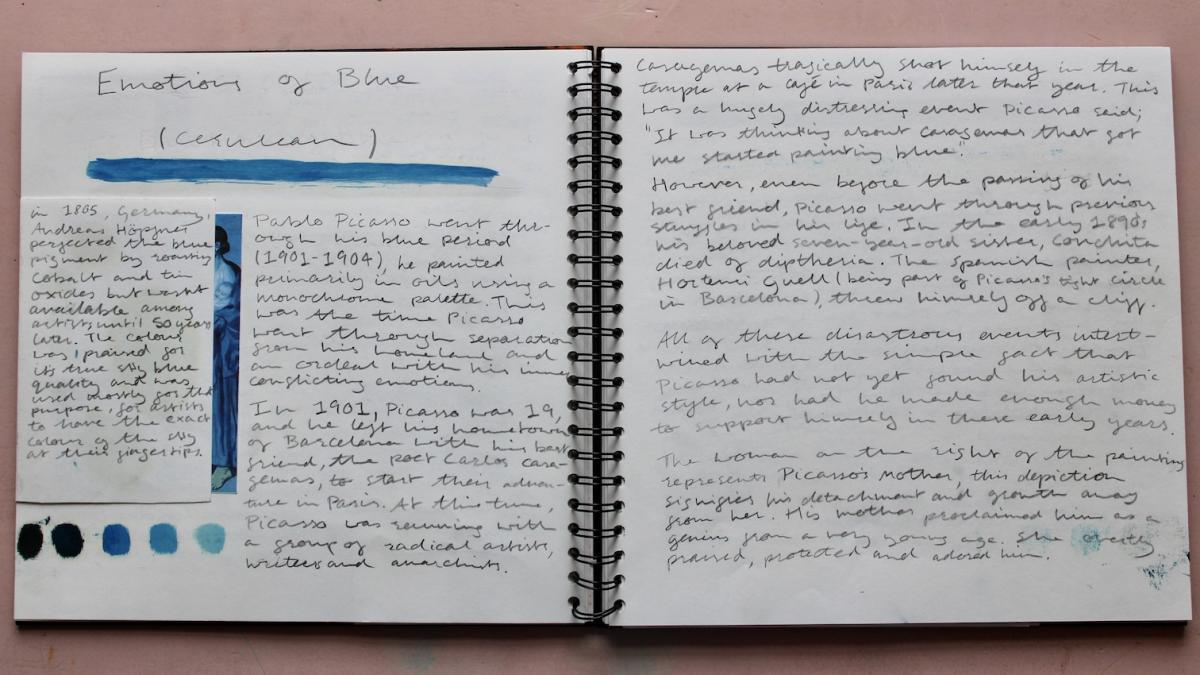 Emotions of Blue
(Cerulean)
in 1805, Germany,
Andreas Höpfner
perfected the blue
pigment by roasting
Cobalt and tin
oxides but wasnt
available among
artists, until 50 years
later. The colour
was praised for
its true sky blue
quality and was
used mostly for that
purpose, for artists
to have the exact
colour of the sky
at their fingertips.
Pablo Picasso went thr-
ough his blue period
(1901-1904), he painted
primarily in oils using a
monochrome palette. This
was the time Picasso
went through separation
from his homeland and
an ordeal with his inner
conflicting emotions.
In 1901, Picasso was 19,
and he left his hometown
of Barcelona with his best
friend, the poet Carlos casa-
gemas, to start their adven-
ture in Paris. At this time,
Picasso was running with
a group of radical artists,
writers and anarchists.
Casagemas tragically shot himself in the
temple at a café in Paris later that year. This
was a hugely distressing event Picasso said;
"It was thinking about Casagemas that got
me started painting blue".
However, even before the passing of his
best friend, Picasso went through previous
struggles in his life. In the early 1890s
his beloved seven-year-old sister, Conchita
died of diptheria. The Spanish painter,
Hortenci Guell (being part of Picasso's tight circle
in Barcelona), threw himself off a cliff.
All of these disastrous events intert-
wined with the simple fact that
Picasso had not yet found his artistic
style, nor had he made enough money
to support himself in these early years.
The woman on the right of the painting
represents Picasso's Mother, this depiction
signifies his detachment and growth away
from her. His mother proclaimed him as a
genius from a very young age. She overtly
praised, protected and adored him.